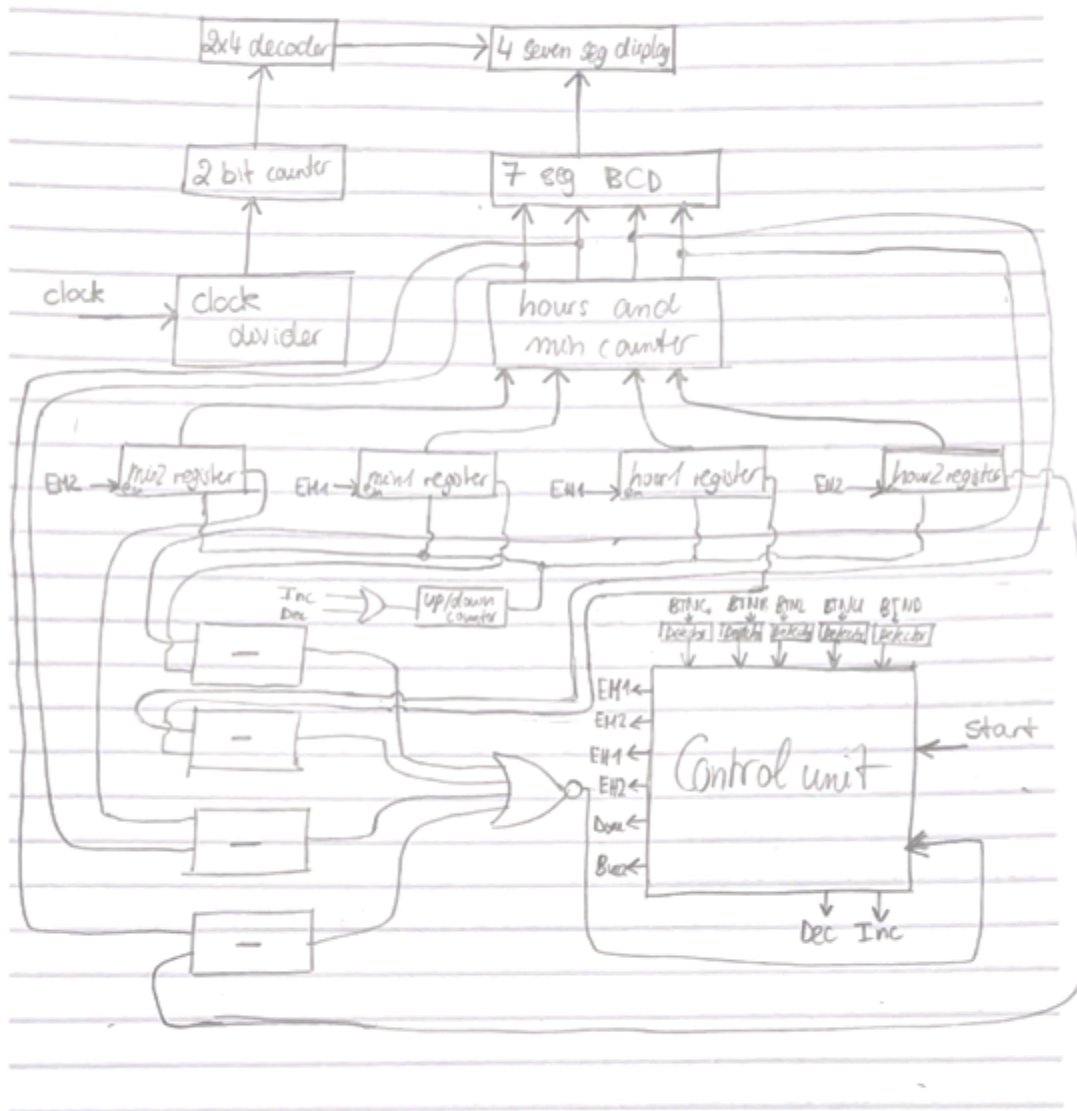 2x4 decoder
4 seven seg display
2 bit counter
7 seg BCD
clock
clock
divider
hours and
min counter
EM2
min2 register
en
EM1
min1 register
EH1
hour1 register
en
EH2
hour2 register
Inc
Dec
up/down
counter
BTNC
BTNR
BTNL
BTNU
BTND
Detector
Detector
Detector
Detector
Detector
−
−
−
−
EM1
EM2
EH1
EH2
Done
Buzz
Control unit
Start
Dec
Inc